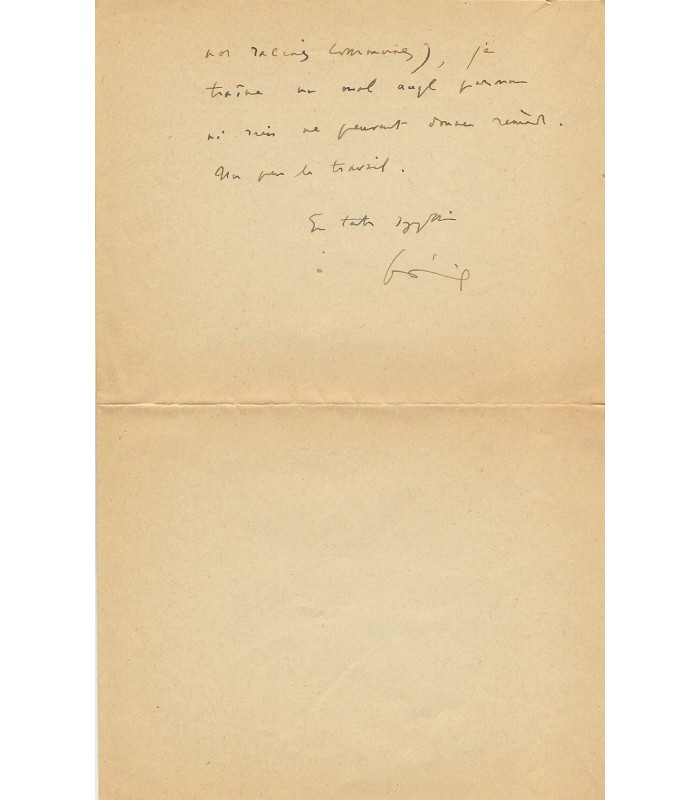 nos racines communes), je
traîne un mal auquel personne
ni rien ne peuvent donner remède.
Un peu le travail.
En toute sympathie